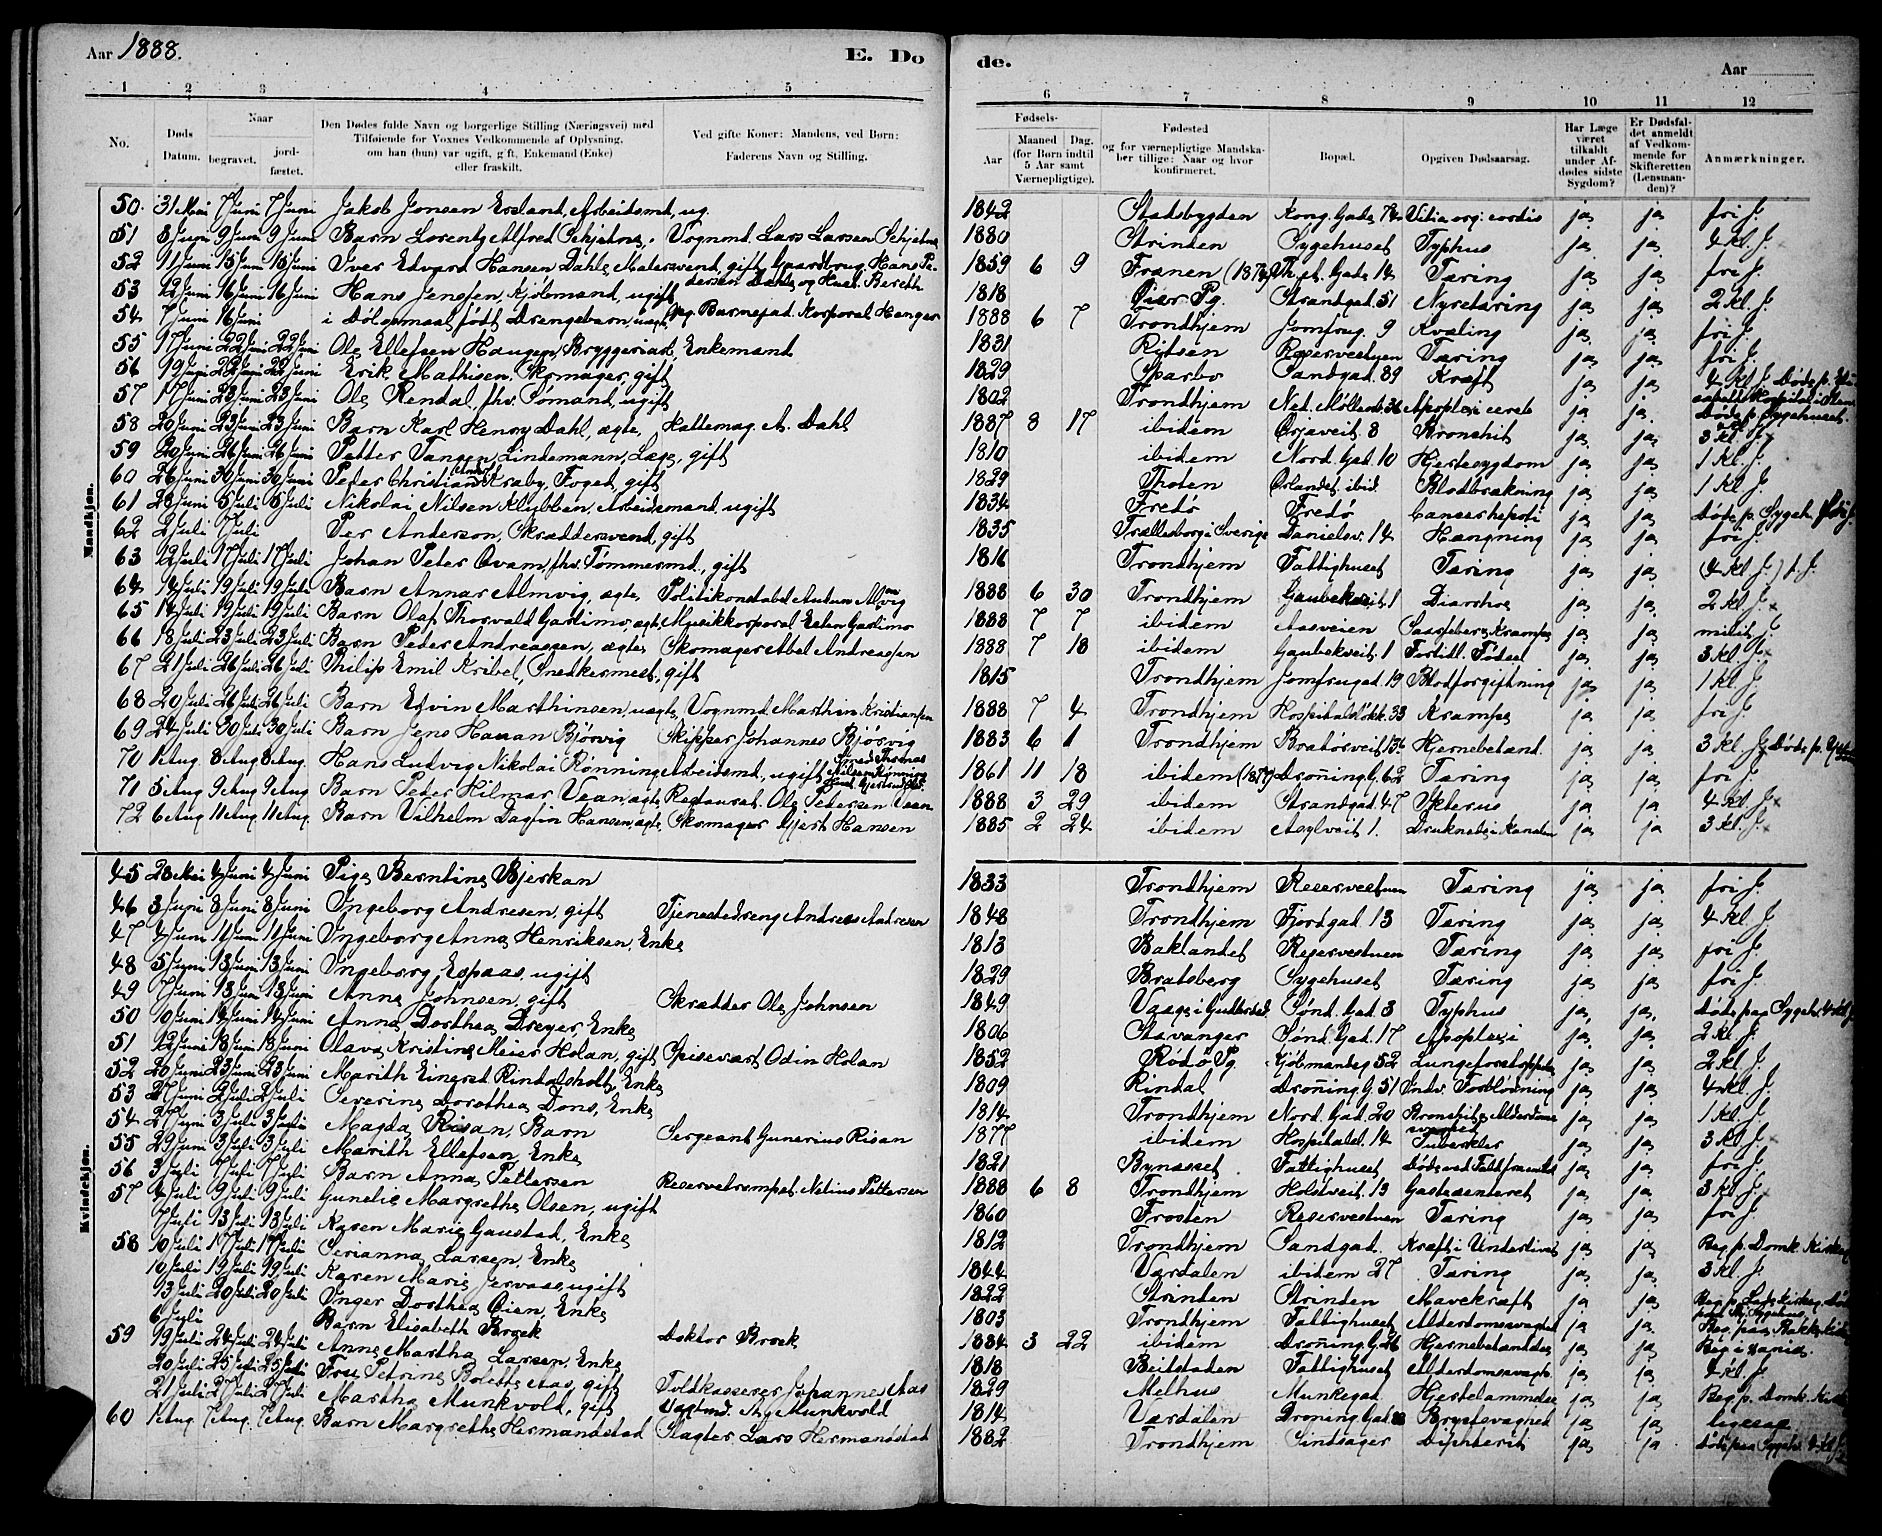 Aar 1888.
E. Do
de.
Aar
1 2 3 4 5
6 7 8 9 10 11 12
No.
Døds Datum.
Naar
begravet.
jordfæstet.
Den Dødes fulde Navn og borgerlige Stilling (Næringsvei) med
Tilføiende for Voxnes Vedkommende af Oplysning,
om han (hun) var ugift, gift, Enkemand (Enke)
eller fraskilt.
Ved gifte Koner: Mandens, ved Børn:
Faderens Navn og Stilling.
Fødsels-
Aar
Maaned
(for Børn indtil
5 Aar samt
Værnepligtige).
Dag.
Fødested
og for værnepligtige Mandska-
ber tillige: Naar og hvor
konfirmeret.
Bopæl.
Opgiven Dødsaarsag.
Har Læge
været
tilkaldt
under Af-
dødes sidste
Sygdom?
Er Dødsfal-
det anmeldt
af Vedkom-
mende for
Skifteretten
(Lensman-
den)?
Anmærkninger.
Mandkjøn.
50. 31 Mai 7 Juni 7 Juni Jakob Jonsen Eseland, Arbeidsmd, ug. 1842 Stadsbygden Kong. Gade 74 Vitia org. cordis ja ja fri J.
51 3 Juni 9 Juni 9 Juni Barn Lorentz Alfred Schjetne, Vognmd. Lars Larsen Schjetne 1880 Strinden Sygehuset Typhus ja ja 4 kl. J.
52 11 Juni 15 Juni 15 Juni Iver Edvard Hansen Dahle, Malersvend, gift, Gaardbrug. Hans Pe- 1859 6 9 Frænen Gade 14 Tæring ja ja fri J.
dersen Dahle og Hust. Bereth
53 12 Juni 16 Juni 16 Juni Hans Jenssen, Kjøbmand, ugift 1818 Øier Pg. Strandgad. 51 Nyretæring ja ja 2 kl. J.
54 7 Juni 16 Juni i Dølgsmaal født Drengebarn, uægte, Korporal 1888 6 7 Trondhjem Jomfrug. 9 Kvæling ja ja fri J.
55 17 Juni 22 Juni 22 Juni Ole Ellefsen Haugen, Bryggeriarb, Enkemand 1831 Ritsen Reservestuen Tæring ja ja fri J.
56 19 Juni 22 Juni 22 Juni Erik Mathisen, Skomager, gift 1829 Sparbo Sandgad. 39 Kræft ja ja 4 kl. J.
57 17 Juni 23 Juni 23 Juni Ole Rendal, fhv. Sømand, ugift 1802 Trondhjem Ned. Møllenb. 36 Apoplexi cereb. ja ja
58 20 Juni 23 Juni 23 Juni Barn Karl Henry Dahl, ægte, Hattemag. A. Dahl 1887 8 17 ibidem Ørjaveit. 8 Bronchit ja ja 3 kl. J.
59 20 Juni 26 Juni 26 Juni Petter Tangen Lindemann, Læge, gift 1810 ibidem Nord. Gad. 10 Hjertesygdom ja ja 1 kl. J.
60 26 Juni 30 Juni 30 Juni Peder Christian Krabby, Foged, gift 1829 Thoten Ørlandet, ibid. Blodbrækning ja ja 1 kl. J.
61 28 Juni 5 Juli 5 Juli Nikolai Nilsen Klubben, Arbeidsmand, ugift 1834 Fredø Fredø ja ja
62 2 Juli 7 Juli Per Anderson, Skræddersvend, gift 1835 Trælleborg i Sverige Danielsv. 14 Hængning ja ja fri J.
63 12 Juli 17 Juli 17 Juli Johan Peter Qvam, fhv. Tømmermd., gift 1816 Trondhjem Fattighuset Tæring ja ja (4 kl. J.) f. J.
64 14 Juli 19 Juli 19 Juli Barn Annar Almvig, ægte, Politikonstabel Anton Almvig 1888 6 30 Trondhjem Gaubekveit. 1 Diarrhoe ja ja 2 kl. J.
65 14 Juli 19 Juli 19 Juli Barn Olaf Thorvald Gartimo, ægte, Musikkorporal Esten Gartimo 1888 7 7 ibidem Aasveien Krampe ja ja milit. J.
66 18 Juli 23 Juli 23 Juli Barn Peder Andreassen, ægte, Skomager Abel Andreassen 1888 7 18 ibidem Gaubekveit. 1 Fortidl. Fødsel ja ja 3 kl. J.
67 21 Juli 26 Juli 26 Juli Philip Emil Kribel, Snedkermest., gift 1815 Trondhjem Jomfrugad. 19 Blodforgiftning ja ja 1 kl. J.
68 20 Juli 26 Juli 26 Juli Barn Edvin Marthinsen, uægte, Vognmd. Marthin Kristiansen 1888 7 4 Trondhjem Hospitalsløkk. 33 Krampe ja ja fri J.
69 24 Juli 30 Juli 30 Juli Barn Jens Haaan Bjørvig Skipper Johannes Bjørvig 1883 6 1 Trondhjem Bratørveit 13b Hjernebetænd. ja ja 3 kl. J.
70 1 Aug. 8 Aug. 8 Aug. Hans Ludvig Nikolai Rønning, Arbeidsmd., ugift 1861 11 18 ibidem Droning. G. 62 Tæring ja ja fri J.
71 5 Aug. 9 Aug. 9 Aug. Barn Peder Hilmar Vean, ægte, Restaurat. Ole Petersen Vean 1888 3 29 ibidem Strandgad. 47 Ikterus ja ja 4 kl. J.
72 6 Aug. 11 Aug. 11 Aug. Barn Vilhelm Dagfin Hansen, ægte, Skomager Gjert Hansen 1885 2 24 ibidem Asylveit 1. Druknede i Kanalen ja ja 3 kl. J.
Kvindekjøn.
45 28 Mai 4 Juni 4 Juni Pige Berntine Bjerkan 1833 Trondhjem Reservestuen Tæring ja ja fri J.
46 3 Juni 8 Juni 8 Juni Ingeborg Andresen, gift Tjenestedreng Andreas Andresen 1848 Trondhjem Fjordgad. 13 Tæring ja ja 4 kl. J.
47 4 Juni 11 Juni 11 Juni Ingeborg Anne Henriksen, Enke 1813 Baklandet Reservestuen Tæring ja ja fri J.
48 5 Juni 13 Juni 13 Juni Ingeborg Espaas, ugift 1829 Bratsberg Sygehuset Tæring ja ja fri J.
49 7 Juni 13 Juni 13 Juni Anne Johnsen, gift Skrædder Ole Johnsen 1849 Vaage i Gudbrdsd. Sønd. Gad. 3 Typhus ja ja Døde paa Sygeh. 4 kl. J.
50 10 Juni 14 Juni 14 Juni Anna Dorthea Dreyer, Enke 1806 Stavanger Sønd. Gad. 17 Apoplexi ja ja 2 kl. J.
51 12 Juni 18 Juni 18 Juni Olava Kristine Meier Holan, gift, Spisevært Odin Holan 1852 Rødø Pg. Kjøbmandsg. 52 ja ja 2 kl. J.
52 20 Juni 23 Juni 23 Juni Marith Eingsed Rindalsholt, Enke 1809 Rindal Droning. G. 51 Indv. Forblødning ja ja 4 kl. J.
53 27 Juni 2 Juli 2 Juli Severine Dorothea Dons, Enke 1814 Trondhjem Nord. Gad. 20 Bronchit & Alderdomssvaghed ja ja 1 kl. J.
54 27 Juni 3 Juli 3 Juli Magda Risan, Barn Sergeant Gunerius Risan 1877 ibidem Hospitalsl. 14 Tuberkler ja ja 3 kl. J.
55 29 Juni 3 Juli 3 Juli Marith Ellefsen, Enke 1821 Bynæsset Fattighuset ja ja fri J.
56 3 Juli 7 Juli 7 Juli Barn Anna Pettersen Reservetrompet. Nelius Pettersen 1888 6 8 Trondhjem Holstveit. 13 Gastroenterit ja ja 3 kl. J.
57 4 Juli 9 Juli 9 Juli Gunelie Margrethe Olsen, ugift 1860 Frosten Reservestuen Tæring ja ja fri J.
7 Juli 13 Juli 13 Juli Karen Marie Gaustad, Enke 1812 Trondhjem Sandgad. Kræft i Underlivet ja ja Beg. p. Domk. Kirkeg.
58 10 Juli 17 Juli 17 Juli Serianna Larsen, Enke 1844 Værdalen ibidem 27 Tæring ja ja 3 kl. J.
16 Juli 19 Juli 19 Juli Karen Marie Jervaas, ugift 1822 Strinden Strinden Mavekræft ja ja
13 Juli 20 Juli 20 Juli Inger Dorthea Øien, Enke 1803 Trondhjem Fattighuset Alderdomssvaghed ja ja
6 Juli Barn Elisabeth Brock Doktor Brock 1884 3 22 ibidem Droning. G. 26 Hjernebetændelse ja ja
59 19 Juli 24 Juli 24 Juli Anne Martha Larsen, Enke 1818 Beitstaden Fattighuset Alderdomssvagh. ja ja 4 kl. J.
20 Juli 25 Juli 25 Juli Fru Petrine Bolette Aas, gift Toldkasserer Johannes Aas 1829 Melhus Munkegad. Hjertelammelse ja ja Beg. p. Domk. Kirkeg.
21 Juli 27 Juli 27 Juli Martha Munkvold, gift Vagtmd. Munkvold 1814 Værdalen Droning. Gad. Brystsvaghed ja ja ligesaa
60 1 Aug. 7 Aug. 7 Aug. Barn Margrethe Hermandstad Slagter Lars Hermandstad 1882 Trondhjem Sindsager Diphterit ja ja Døde paa Sygeh. 4 kl. J.